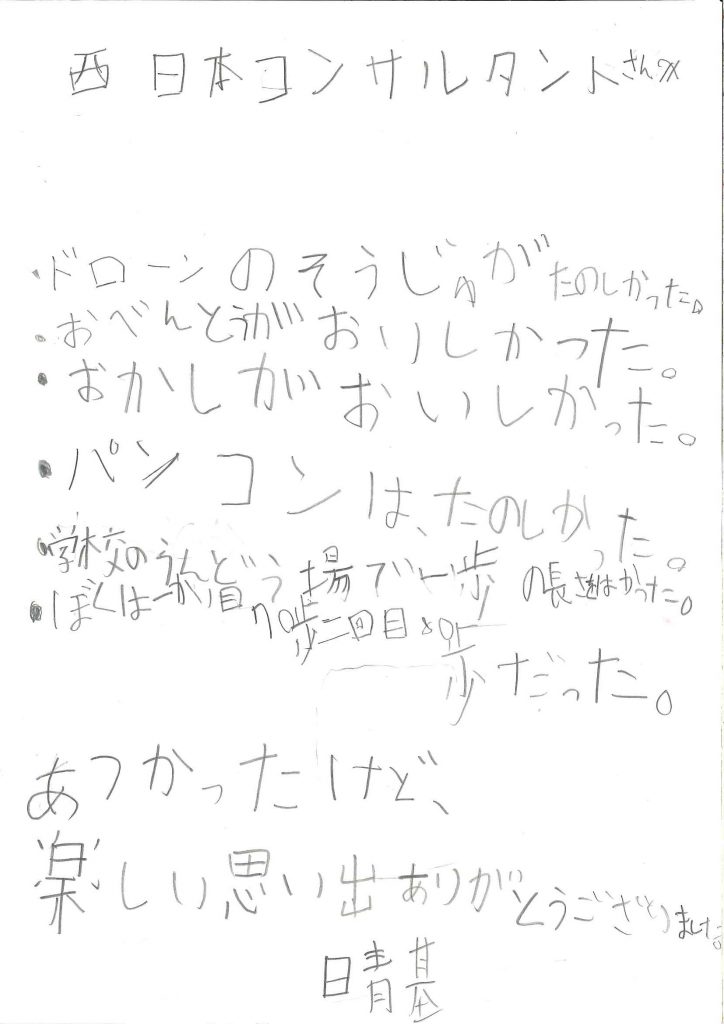 西日本コンサルタントさんへ
・ドローンのそうじゅうがたのしかった。
・おべんとうがおいしかった。
・おかしがおいしかった。
・パソコンは、たのしかった。
・学校のうんどう場で一歩の長さをはかった。
・ぼくは一かい目70歩二回目80歩だった。
あつかったけど、
楽しい思い出ありがとうございました。
晴基